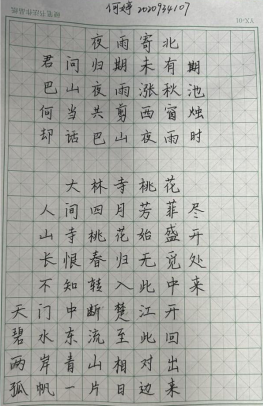 何婷 2020934107
夜雨寄北
君问归期未有期
巴山夜雨涨秋池
何当共剪西窗烛
却话巴山夜雨时
大林寺桃花
人间四月芳菲尽
山寺桃花始盛开
长恨春归无觅处
不知转入此中来
天门中断楚江开
碧水东流至此回
两岸青山相对出
孤帆一片日边来